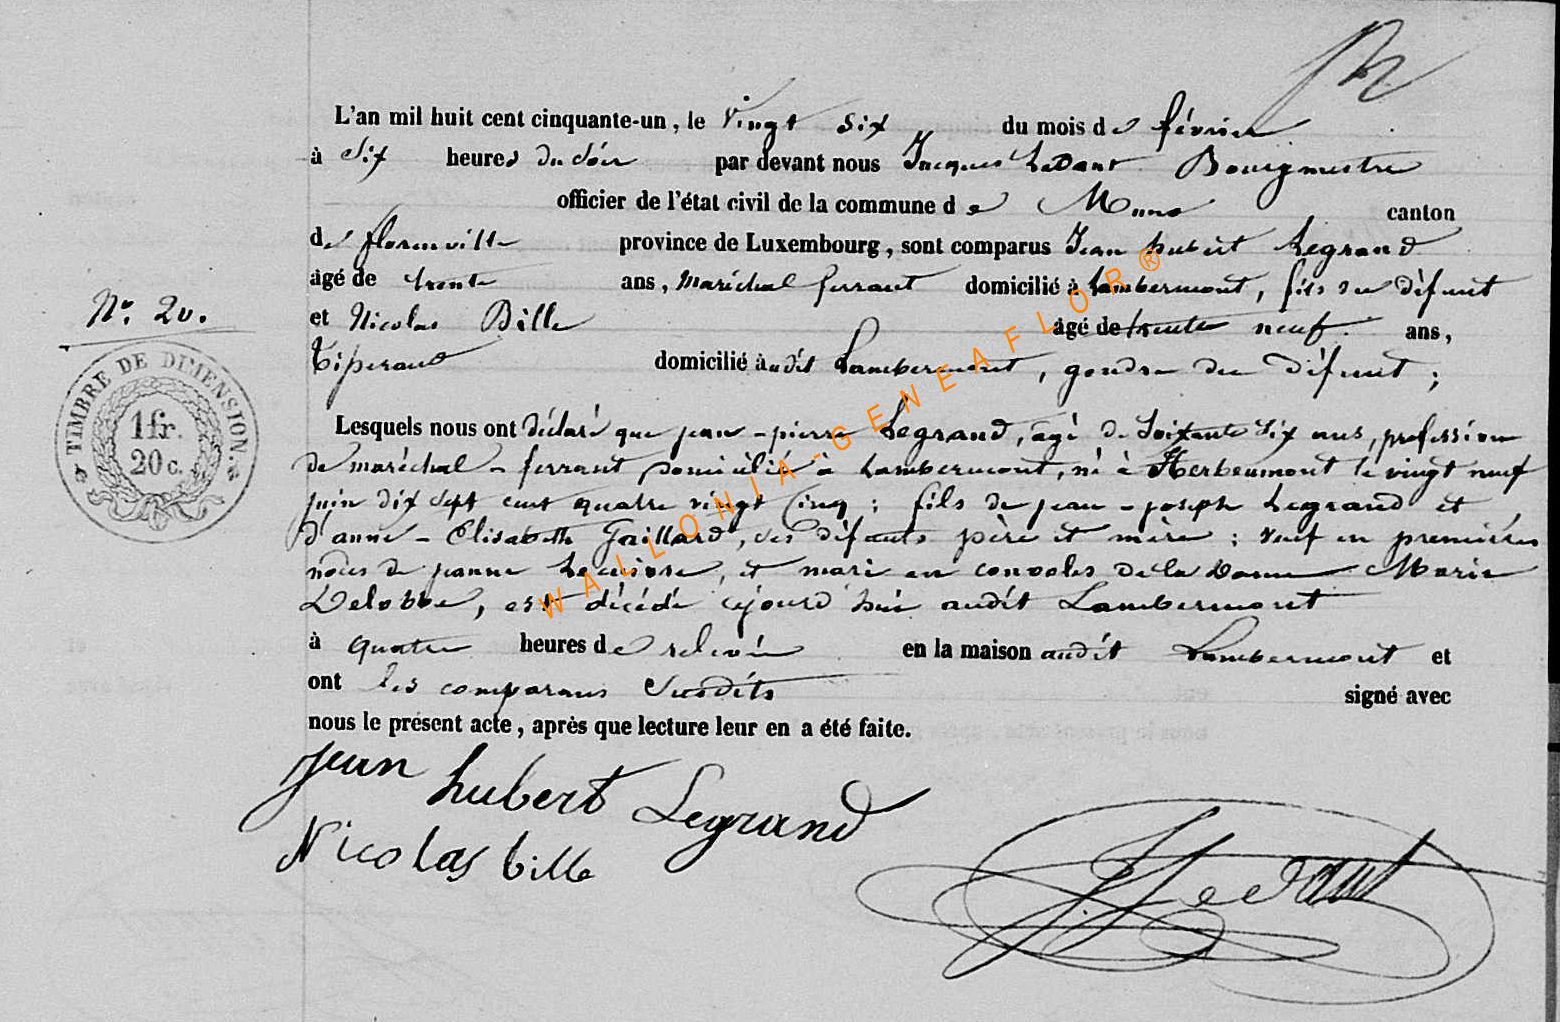 L'an mil huit cent cinquante-un, le Vingt Six du mois de février
à Six heures du Soir par devant nous Jacques Ledant Bourgmestre
officier de l'état civil de la commune de Muno canton
de florenville province de Luxembourg, sont comparus Jean hubert Legrand
âgé de trente ans, Maréchal ferrant domicilié à Lambermont, fils du défunt
Nº 20.
et Nicolas Bille âgé de trente neuf ans,
domicilié audit Lambermont, gendre du défunt;
TIMBRE DE DIMENSION.
1 fr.
20 c.
Lesquels nous ont déclaré que jean-pierre Legrand, âgé de Soixante Six ans, profession
de maréchal-ferrant, domicilié à Lambermont, né à Herbeumont le vingt neuf
juin dix sept cent quatre vingt Cinq; fils de jean-joseph Legrand et
d'anne-Elisabeth Gaillard, ses défunts père et mère; veuf en premières
noces de jeanne et mari en convoles de la Dame Marie
Delobbe, est décédé cejourd'hui audit Lambermont
à quatre heures de relevée en la maison audit Lambermont et
ont les comparans Susdits signé avec
nous le présent acte, après que lecture leur en a été faite.
jean hubert Legrand
Nicolas bille
J Ledant
WALLONIA-GENEAFLOR®